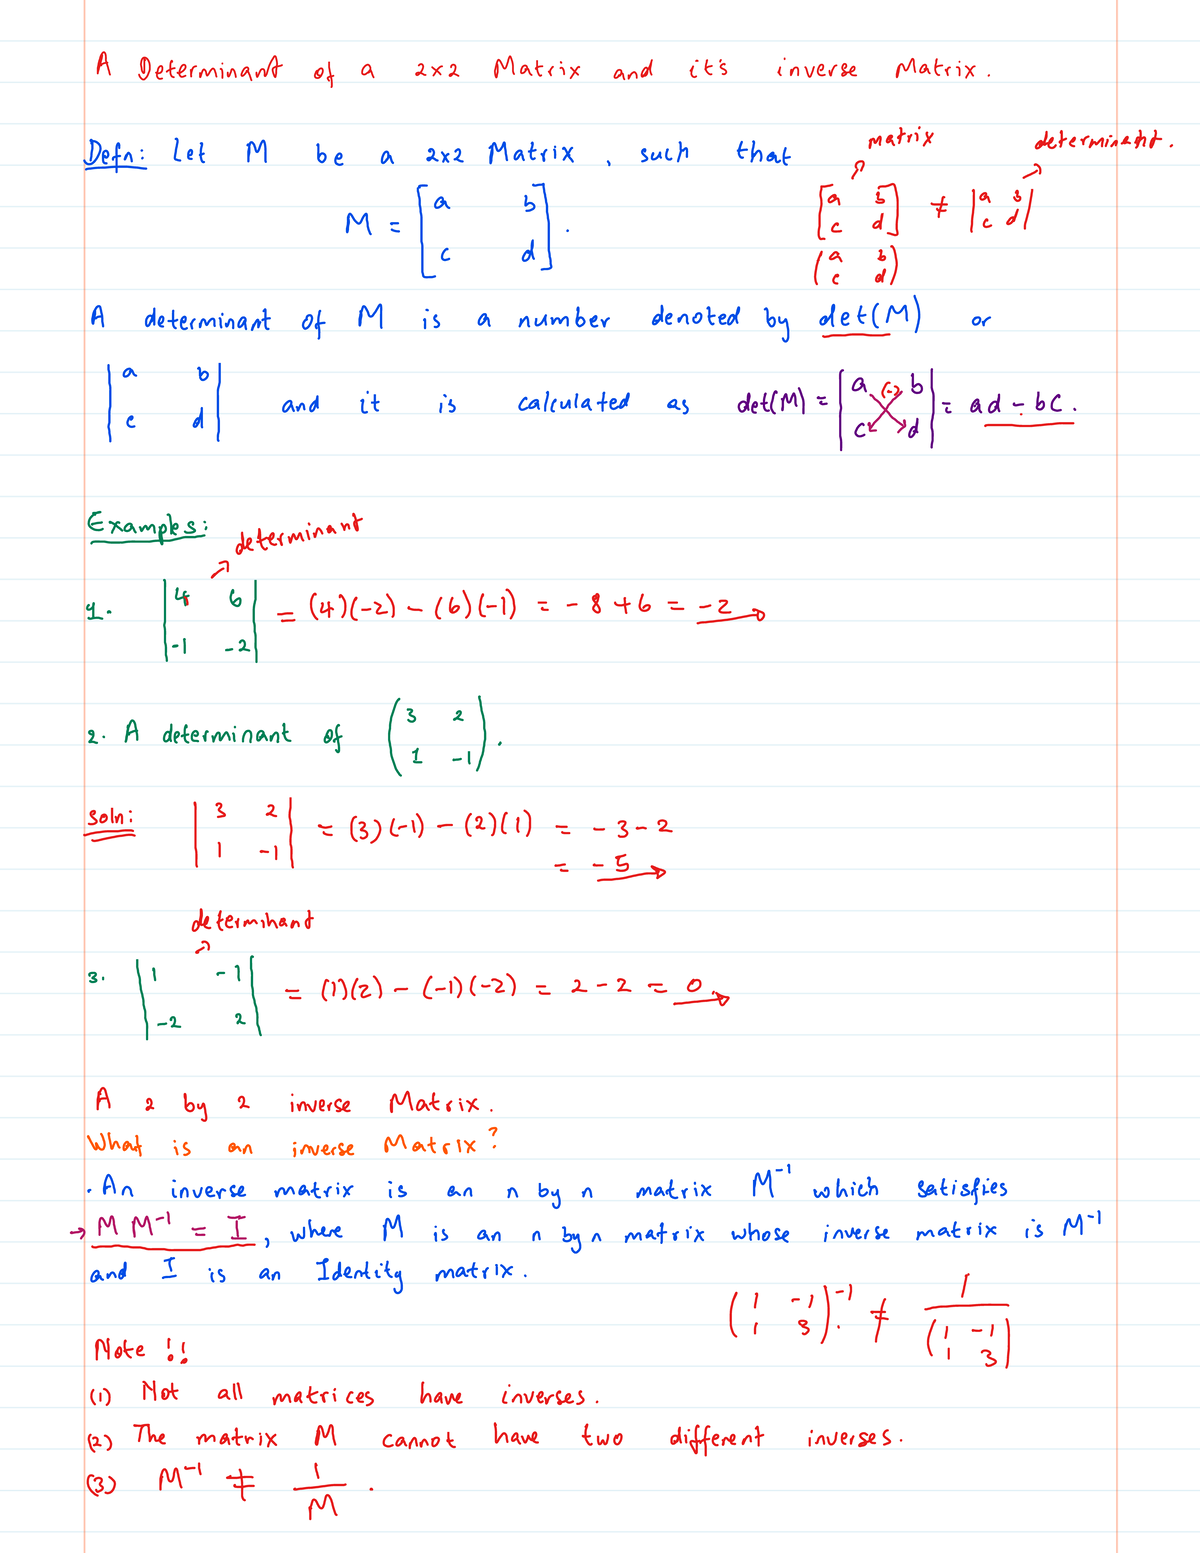 A Determinant of a 2x2 Matrix and it's inverse Matrix.
Defn: Let M be a 2x2 Matrix, such that
matrix
determinant.
M = [a b; c d].
[a b; c d] ≠ |a b; c d|
(a b; c d)
A determinant of M is a number denoted by det(M) or
|a b; c d| and it is calculated as det(M) = |a (-) b; c d| = ad - bc.
Examples:
determinant
1. |4 6; -1 -2| = (4)(-2) - (6)(-1) = -8 + 6 = -2
2. A determinant of (3 2; 1 -1).
Soln: |3 2; 1 -1| = (3)(-1) - (2)(1) = -3-2
= -5
determinant
3. |1 -1; -2 2| = (1)(2) - (-1)(-2) = 2-2 = 0
A 2 by 2 inverse Matrix.
What is an inverse Matrix?
. An inverse matrix is an n by n matrix M⁻¹ which satisfies
→ M M⁻¹ = I, where M is an n by n matrix whose inverse matrix is M⁻¹
and I is an Identity matrix.
(1 -1; 1 3)⁻¹. ≠ 1/(1 -1; 1 3)
Note !!
(1) Not all matrices have inverses.
(2) The matrix M cannot have two different inverses.
(3) M⁻¹ ≠ 1/M.